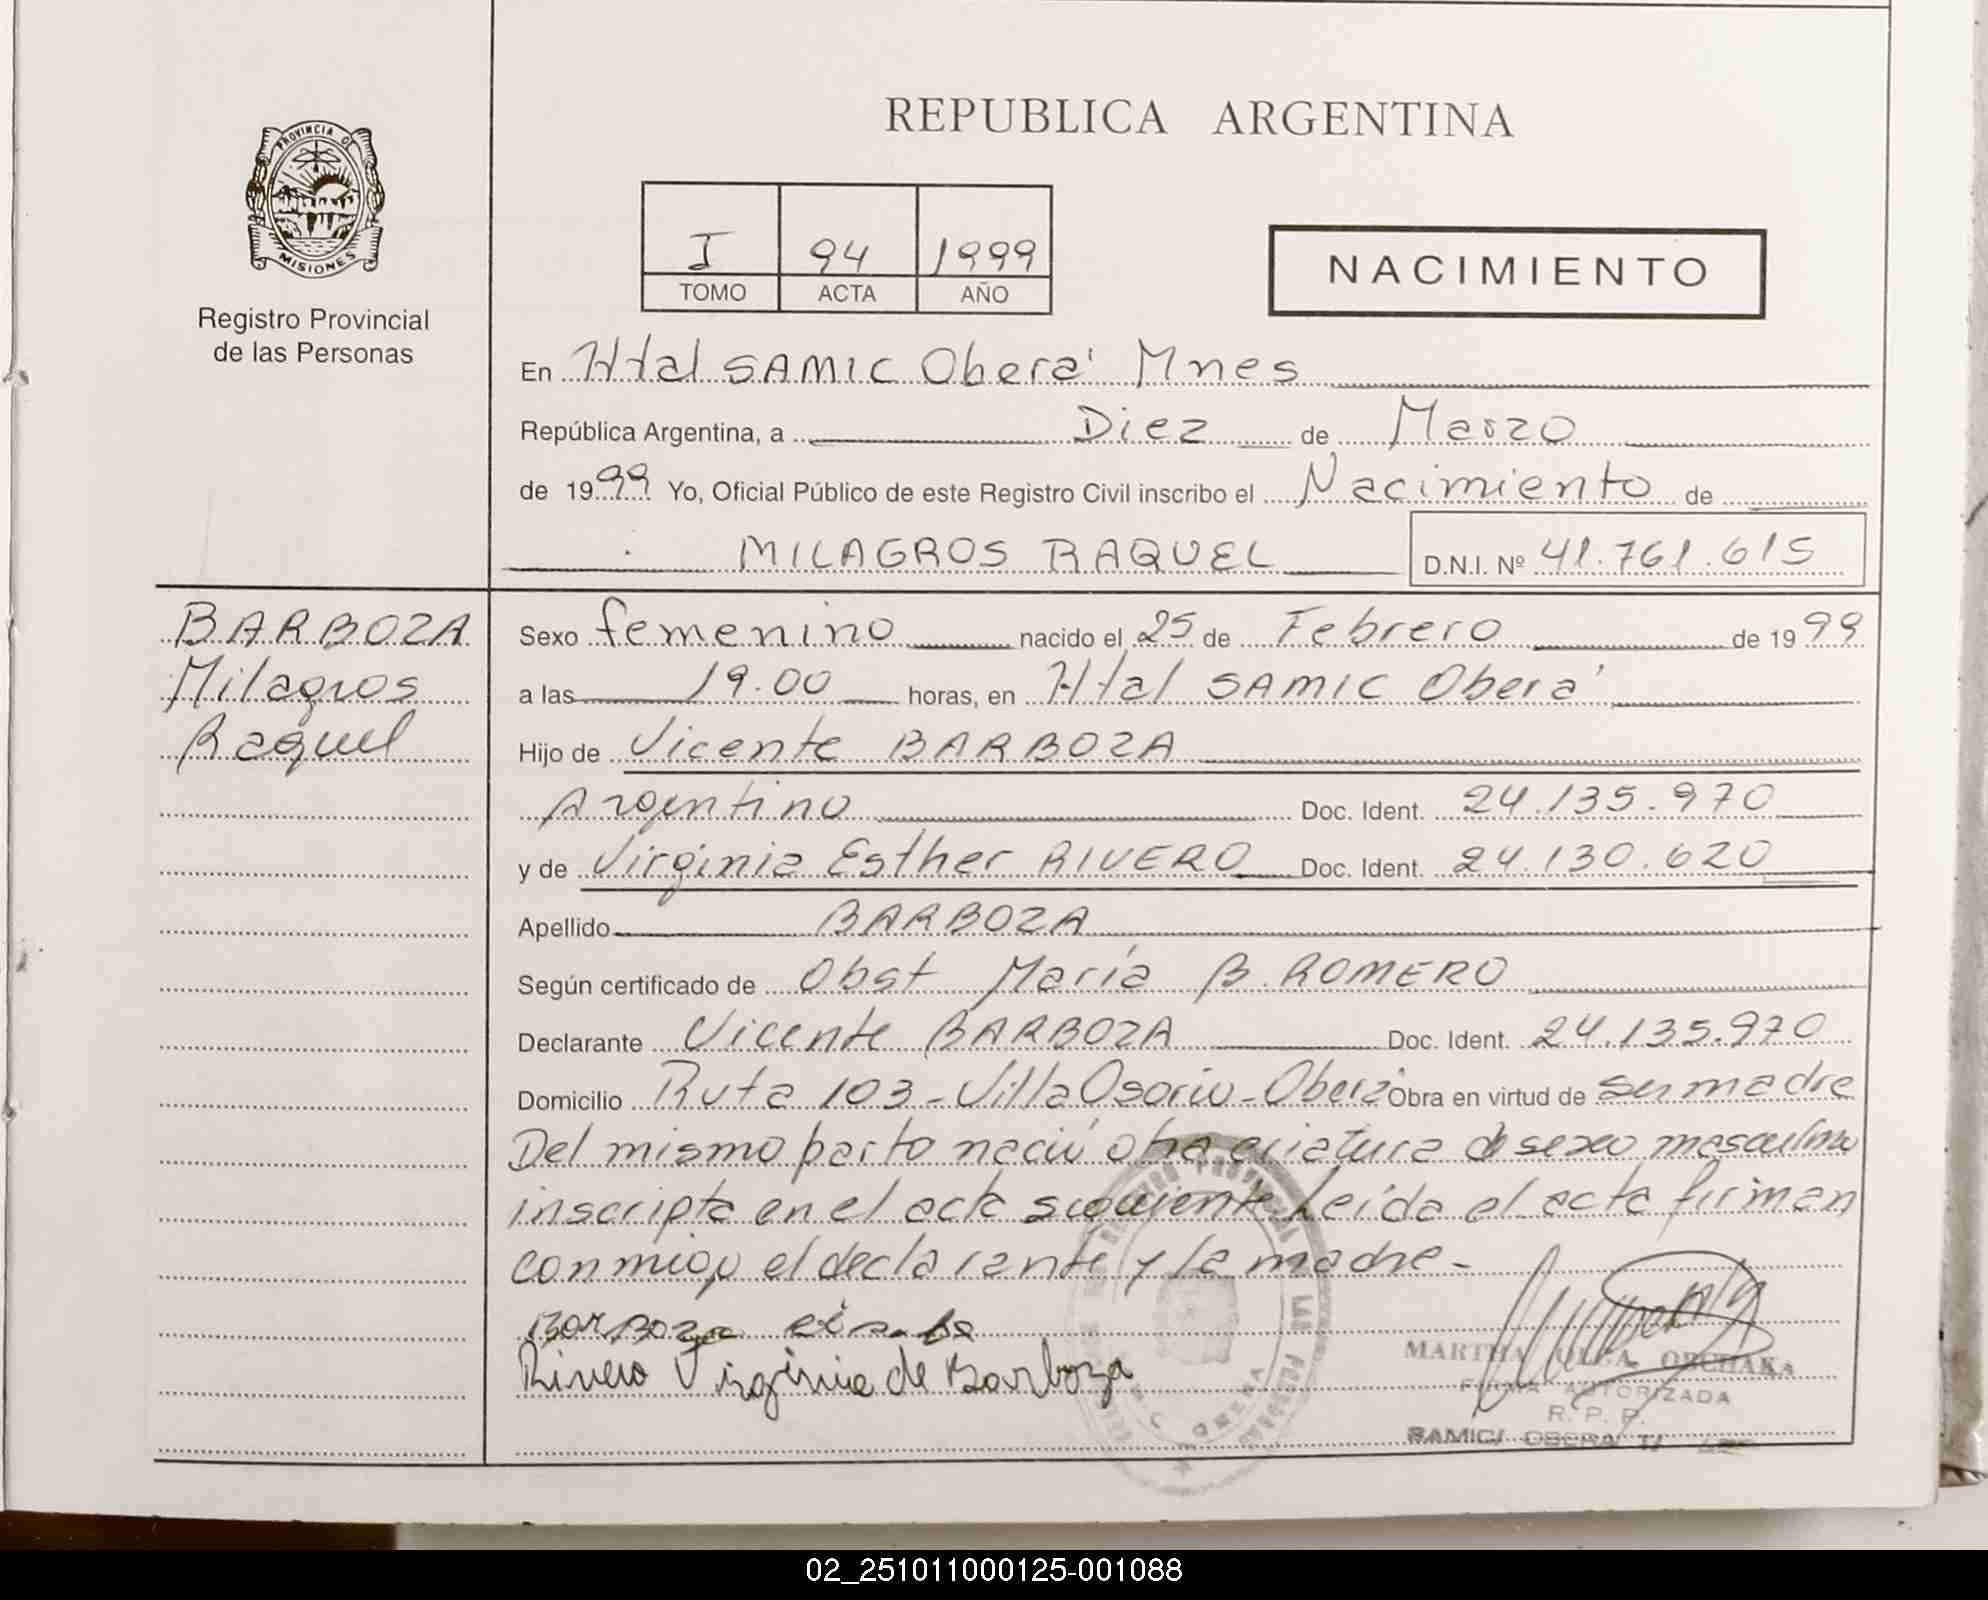 REPUBLICA ARGENTINA
PROVINCIA DE
MISIONES
Registro Provincial
de las Personas
I 94 1999
TOMO ACTA AÑO
NACIMIENTO
En Htal SAMIC Oberá Mnes
República Argentina, a Diez de Marzo
de 1999 Yo, Oficial Público de este Registro Civil inscribo el Nacimiento de
MILAGROS RAQUEL D.N.I. Nº 41.761.615
BARBOZA
Milagros
Raquel
Sexo femenino nacido el 25 de Febrero de 1999
a las 19.00 horas, en Htal SAMIC Oberá
Hijo de Vicente BARBOZA
Argentino Doc. Ident. 24.135.970
y de Virginia Esther RIVERO Doc. Ident. 24.130.620
Apellido BARBOZA
Según certificado de Obst María B. ROMERO
Declarante Vicente BARBOZA Doc. Ident. 24.135.970
Domicilio Ruta 103 - Villa Osorio - Oberá Obra en virtud de ser madre
Del mismo parto nació otra criatura de sexo masculino
inscripta en el acta siguiente Leída el acta firman
conmigo el declarante y la madre -
Barboza
Rivero Virginia de Barboza
MARTHA OLGA
FIRMA AUTORIZADA
R. P. P.
SAMIC/ OBERA
02_251011000125-001088